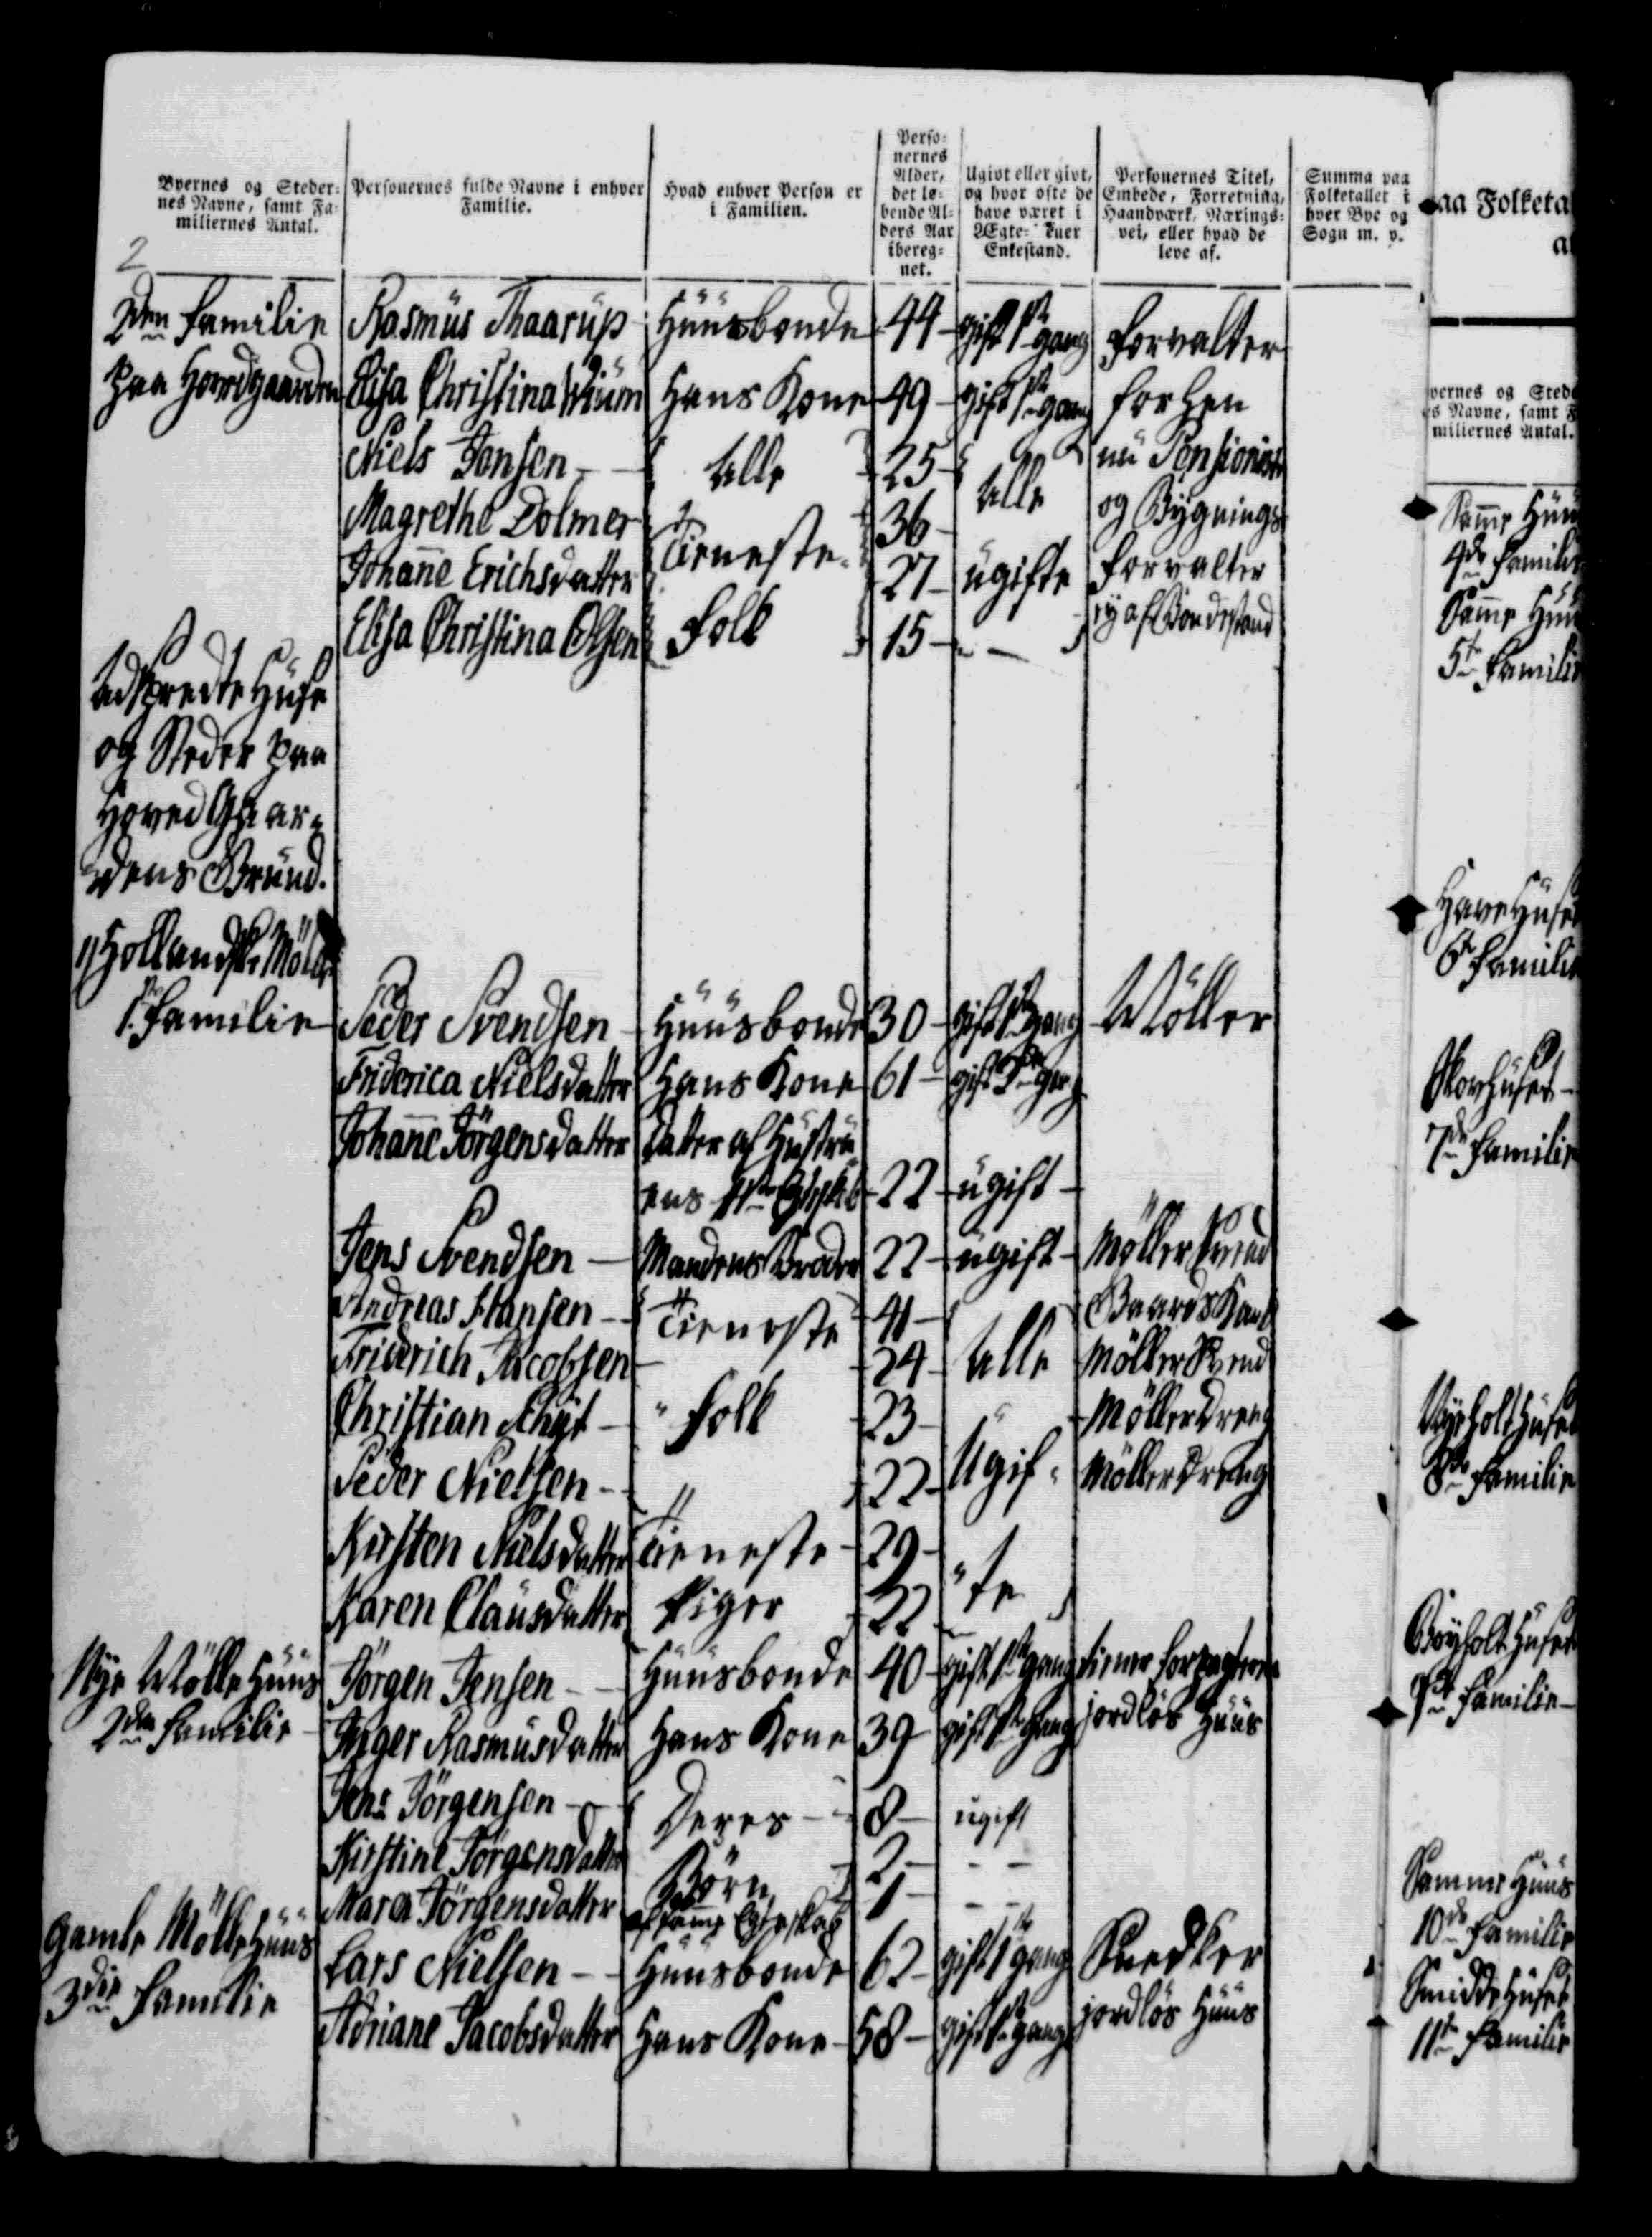 Byernes og Steder- nes Navne, samt Fa- miliernes Antal.
Personernes fulde Navne i enhver Familie.
Hvad enhver Person er i Familien.
Perso- nernes Alder, det lø- bende Al- ders Aar ibereg- net.
Ugivt eller givt, og hvor ofte de have været i Ægte- eller Enkestand.
Personernes Titel, Embede, Forretning, Haandværk, Nærings- vei, eller hvad de leve af.
Summa paa Folketallet i hver Bye og Sogn m. v.
2
2den Familie Rasmus Thaarup Huusbonde 44 gift 1ste gang Forvalter
paa Hovedgaarden Elisa Christina Wium Hans Kone 49 gift 1ste gang forhen
Niels Jensen Alle 25 Alle nu Pensionist
Magrethe Dolmer Tieneste- 36 og Bygnings
Johanne Erichsdatter 27 ugifte Forvalter
Elisa Christina Olsen Folk 15 - ey af Bondestand
Adspredte Huse
og Steder paa
Hoved Gaar-
dens Grund.
Hollandske Mølle
1ste Familie Peder Svendsen Huusbonde 30 gift 1ste gang Møller
Friderica Nielsdatter Hans Kone 61 gift 2den gang
Johanne Jørgensdatter Datter af Hustru
ens 1ste Egteskab 22 ugift
Jens Svendsen Mandens Broder 22 ugift Møllersvend
Andreas Hansen Tieneste 41 Alle
Friderich Jacobsen 24 Møllersvend
Christian Folk 23 Ugif- Møllerdreng
Peder Nielsen 22 Møllerdreng
Kirsten Nielsdatter Tieneste 29 te
Karen Clausdatter Piger 22
Nye Mølle Huus Jørgen Jensen Huusbonde 40 gift 1ste gang tiener Forpagteren
2den Familie Inger Rasmusdatter Hans Kone 39 gift 1ste gang jordløs Huus
Jens Jørgensen Deres 8 ugift
Kirstine Jørgensdatter Børn 2 - -
Maren Jørgensdatter af samme Egteskab 1 - -
Gamle Mølle Huus Lars Nielsen Huusbonde 62 gift 1ste gang Snedker
3die Familie Adriane Jacobsdatter Hans Kone 58 gift 1ste gang jordløs Huus
aa Folketa
Samme Huus
4de Familie
Samme Huus
5te Familie
Have Huset
6te Familie
Skovhuset
7de Familie
8de Familie
9de Familie
Samme Huus
10de Familie
Smidde Huset
11te Familie